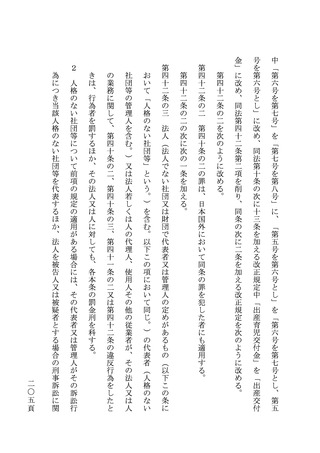 中「第六号を第七号」を「第七号を第八号」に、「第五号を第六号とし」を「第六号を第七号とし、第五
号を第六号とし」に改め、同法第十条の次に十三条を加える改正規定中「出産育児交付金」を「出産交付
金」に改め、同法第四十二条第二項を削り、同条の次に二条を加える改正規定を次のように改める。
第四十二条の二を次のように改める。
第四十二条の二 第四十条の二の罪は、日本国外において同条の罪を犯した者にも適用する。
第四十二条の二の次に次の一条を加える。
第四十二条の三 法人（法人でない社団又は財団で代表者又は管理人の定めがあるもの（以下この条に
おいて「人格のない社団等」という。）を含む。以下この項において同じ。）の代表者（人格のない
社団等の管理人を含む。）又は法人若しくは人の代理人、使用人その他の従業者が、その法人又は人
の業務に関して、第四十条の二、第四十条の三、第四十一条の二又は第四十二条の違反行為をしたと
きは、行為者を罰するほか、その法人又は人に対しても、各本条の罰金刑を科する。
２ 人格のない社団等について前項の規定の適用がある場合には、その代表者又は管理人がその訴訟行
為につき当該人格のない社団等を代表するほか、法人を被告人又は被疑者とする場合の刑事訴訟に関
二〇五頁